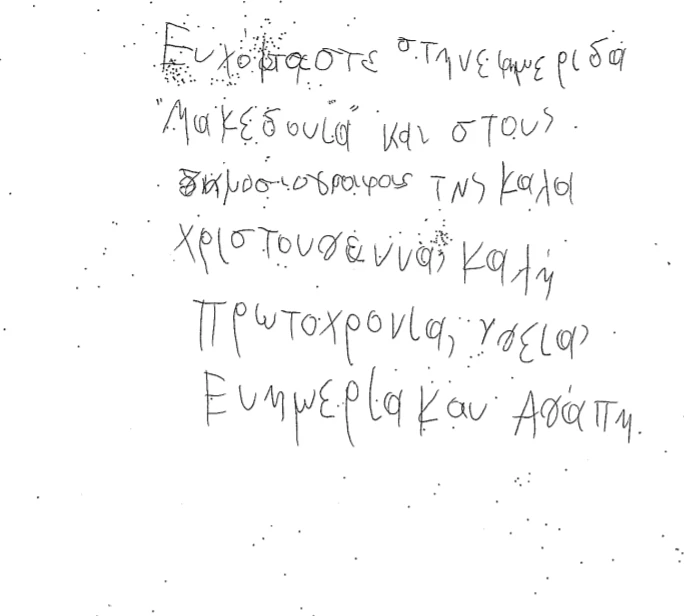 Ευχόμαστε στην εφημεριδα
"Μακεδονία" και στους
δημοσιογραφους της καλα
χριστουγεννα, καλή
πρωτοχρονία, υγεία,
Ευημερία και Αγάπη.